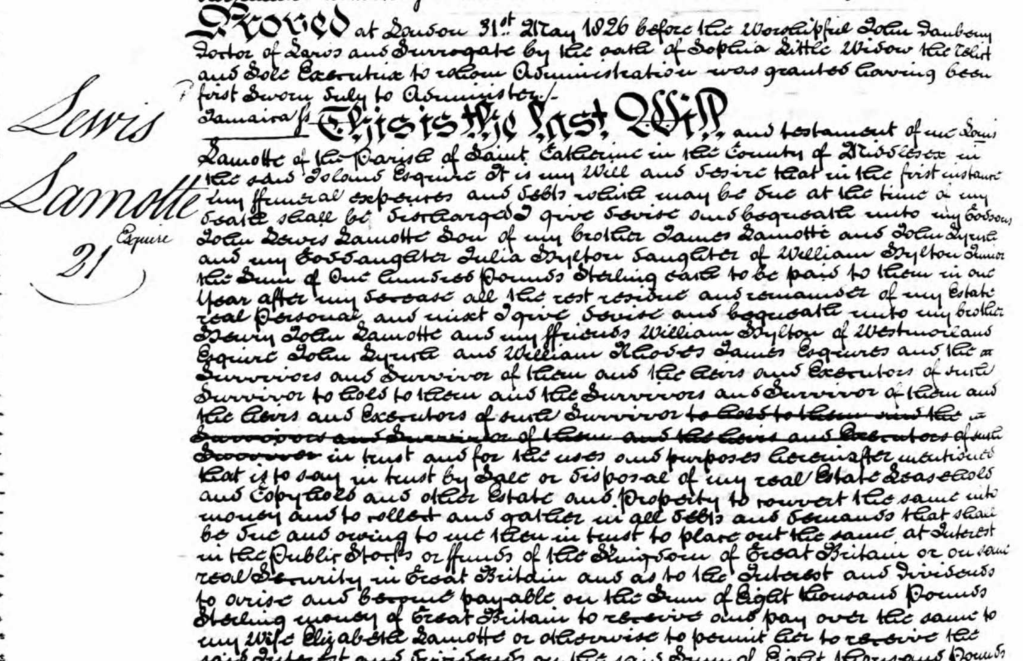 Proved at London 31st May 1826 before the Worshipful John Daubeny
Doctor of Laws and Surrogate by the oath of Sophia Little Widow the Relict
and Sole Executrix to whom Administration was granted having been
first sworn duly to Administer./-
Lewis
Lamotte
Esquire
21
Jamaica ss This is the last Will and testament of me Louis
Lamotte of the Parish of Saint Catherine in the County of Middlesex in
the said Island Esquire It is my Will and desire that in the first instance
my ffuneral expences and debts which may be due at the time of my
death shall be discharged I give devise and bequeath unto my Godsons
John Lewis Lamotte Son of my brother James Lamotte and John
and my Goddaughter Julia Hylton daughter of William Hylton Junior
the Sum of One hundred Pounds Sterling each to be paid to them in one
Year after my decease all the rest residue and remainder of my Estate
real Personal and mixt I give devise and bequeath unto my brother
Henry John Lamotte and my ffriends William Hylton of Westmorland
Esquire John and William Rhodes James Esquires and the
Survivors and Survivor of them and the heirs and Executors of such
Survivor to hold to them and the Survivors and Survivor of them and
the heirs and Executors of such Survivor to hold to them and the
Survivors and Survivor of them and the heirs and Executors of such
Survivor in trust and for the uses and purposes hereinafter mentioned
that is to say in trust by Sale or disposal of my real Estate Leasehold
and Copyhold and other Estate and Property to convert the same into
money and to collect and gather in all debts and demands that shall
be due and owing to me then in trust to place out the same at Interest
in the Public Stocks or ffunds of the Kingdom of Great Britain or on some
real Security in Great Britain and as to the Interest and Dividends
to arise and become payable on the Sum of Eight thousand Pounds
Sterling money of Great Britain to receive and pay over the same to
my Wife Elizabeth Lamotte or otherwise to permit her to receive the
said Interest and dividends on the said Sum of Eight thousand Pounds